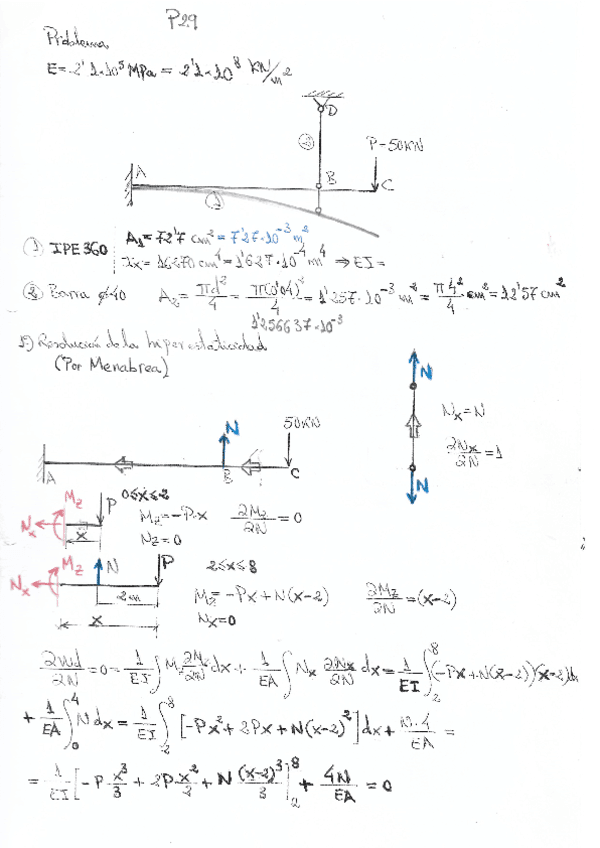 P29
Problema
E = 2'1·10⁵ MPa = 2'1·10⁸ KN/m²
D
②
P=50KN
A
B
C
①
① IPE360
A₁ = 72'7 cm² = 7'27·10⁻³ m²
Ix = 16270 cm⁴ = 1'627·10⁻⁴ m⁴ ⇒ EI =
② Barra ϕ40 A₂ = πd²/4 = π(0'04)²/4 = 1'257·10⁻³ m² = π4²/4 cm² = 12'57 cm²
1'256637·10⁻³
1º) Resolución de la hiperestaticidad
(Por Menabrea)
N
Nx = N
∂Nx/∂N = 1
N
N
50KN
A
B
C
Mz
P
0≤x≤2
Nx
x
Mz = -P·x ∂Mz/∂N = 0
Nz = 0
Mz
N
P
2≤x≤8
Nx
2m
x
Mz = -Px + N(x-2) ∂Mz/∂N = (x-2)
Nx = 0
∂wd/∂N = 0 = 1/EI ∫ Mz ∂Mz/∂N dx + 1/EA ∫ Nx ∂Nx/∂N dx = 1/EI ∫₂⁸ (-Px + N(x-2))(x-2) dx
+ 1/EA ∫₀⁴ N dx = 1/EI ∫₂⁸ [-Px² + 2Px + N(x-2)²] dx + N·4/EA =
= 1/EI [-P x³/3 + 2P x²/2 + N (x-2)³/3]₂⁸ + 4N/EA = 0